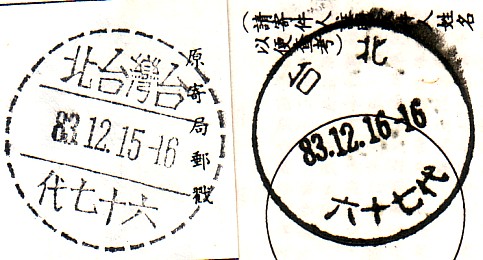 台灣台北
83.12.15-16
六十七代
原寄局郵戳
(請寄件人 件人姓名
以便查考)
台北
83.12.16-16
六十七代